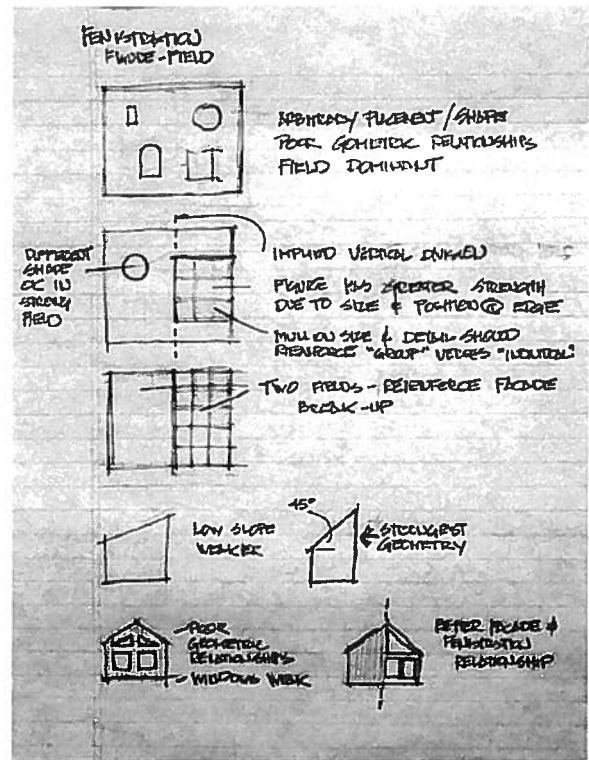 FENISTRATION
FIGURE-FIELD
ARBITRARY PLACEMENT/SHAPE
POOR GOMETRIC RELATIONSHIPS
FIELD DOMINANT
DIFFERENT
SHAPE
OK IN
STRONG
FIELD
IMPLIED VERTICAL DIVISION
FIGURE HAS GREATER STRENGTH
DUE TO SIZE & POSITION @ EDGE
MULLION SIZE & DETAIL SHOULD
REINFORCE "GROUP" VERSES
TWO FIELDS - REINFORCE FACADE
BREAK-UP
LOW SLOPE
WEAKER
45°
STRONGEST
GEOMETRY
POOR
GEOMETRIC
RELATIONSHIPS
WINDOWS WEAK
BETTER FACADE &
FENISTRATION
RELATIONSHIP